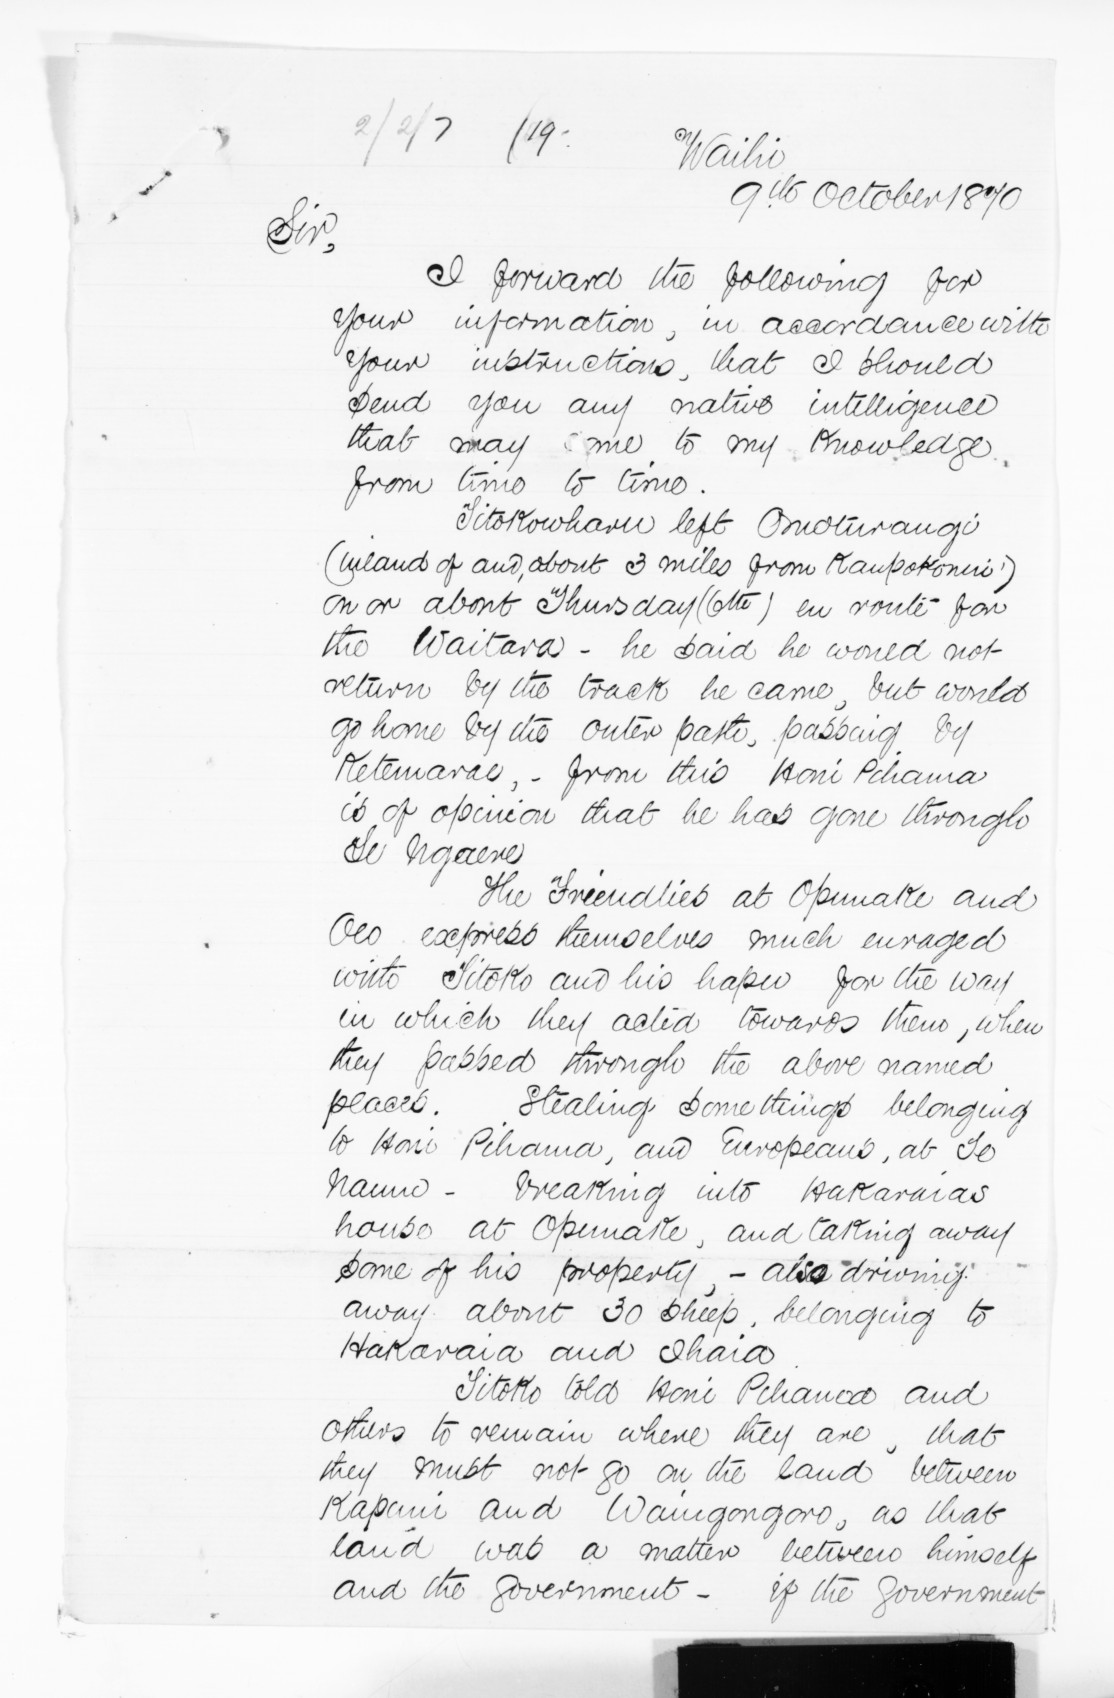 2/2/7 (19.
Waihi
9th October 1870
Sir,
I forward the following for
your information, in accordance with
your instructions, that I should
send you any native intelligence
that may come to my knowledge
from time to time.
Titokowharu left Omoturangi
(inland of and, about 3 miles from Kaupokonui)
on or about Thursday (6th) en route for
the Waitara - he said he would not
return by the track he came, but would
go home by the outer path, passing by
Ketemarae, - from this Honi Pihama
is of opinion that he has gone through
Te Ngaere
The Friendlies at Opunake and
Oeo express themselves much enraged
with Titoko and his hapu for the way
in which they acted towards them, when
they passed through the above named
places. Stealing some things belonging
to Honi Pihama, and Europeans, at Te
Namu - breaking into Hakaraias
house at Opunake, and taking away
some of his property, - also driving
away about 30 sheep, belonging to
Hakaraia and Ihaia
Titoko told Honi Pihama and
others to remain where they are, that
they must not go on the land between
Kapuni and Waingongoro, as that
land was a matter between himself
and the government - if the government